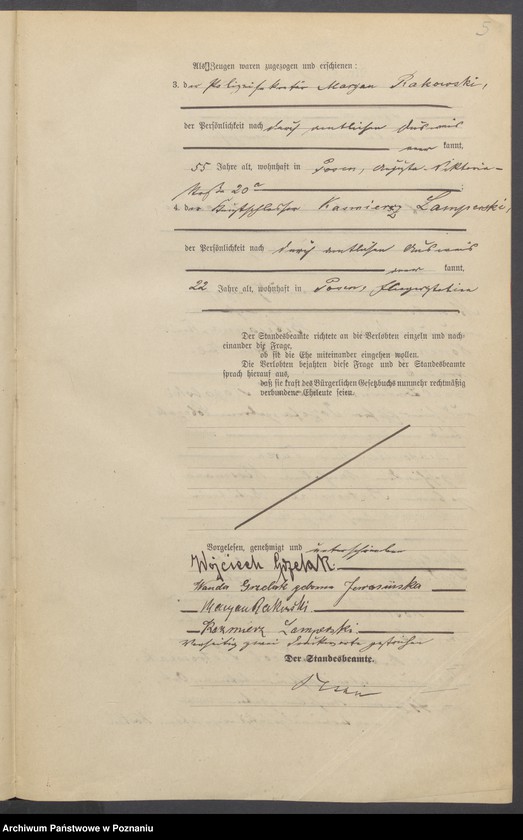 5
Als Zeugen waren zugezogen und erschienen:
3. der Polizeisekretär Maryan Rakowski,
der Persönlichkeit nach durch amtlichen Ausweis
kannt,
55 Jahre alt, wohnhaft in Posen, Auguste-Viktoria-
straße 20a
4. der Kazmierz Lamperski,
der Persönlichkeit nach durch amtlichen Ausweis
kannt,
22 Jahre alt, wohnhaft in Posen, Fliegerstation
Der Standesbeamte richtete an die Verlobten einzeln und nach-
einander die Frage,
ob sie die Ehe miteinander eingehen wollen.
Die Verlobten bejahten diese Frage und der Standesbeamte
sprach hierauf aus,
daß sie kraft des Bürgerlichen Gesetzbuchs nunmehr rechtmäßig
verbundene Eheleute seien.
Vorgelesen, genehmigt und unterschrieben
Wojciech Grzelak
Wanda Grzelak geborene
Maryan Rakowski
Kazmierz Lamperski
Vorseitig zwei Druckworte gestrichen
Der Standesbeamte.
Archiwum Państwowe w Poznaniu